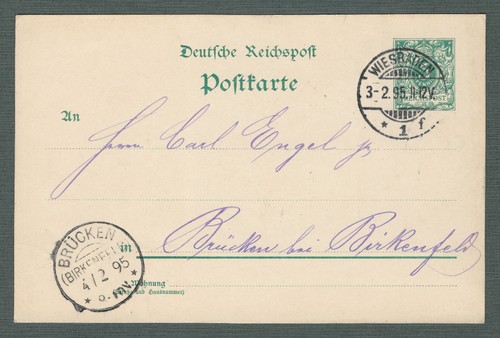 Deutsche Reichspost
Postkarte
WIESBADEN
3-2.95.11-12V.
* 1 f
An
Herrn Carl Engel jr
BRÜCKEN
(BIRKENFELD)
4/2 95
* 8.-9V. *
in Brücken bei Birkenfeld
Wohnung
(Straße und Hausnummer)